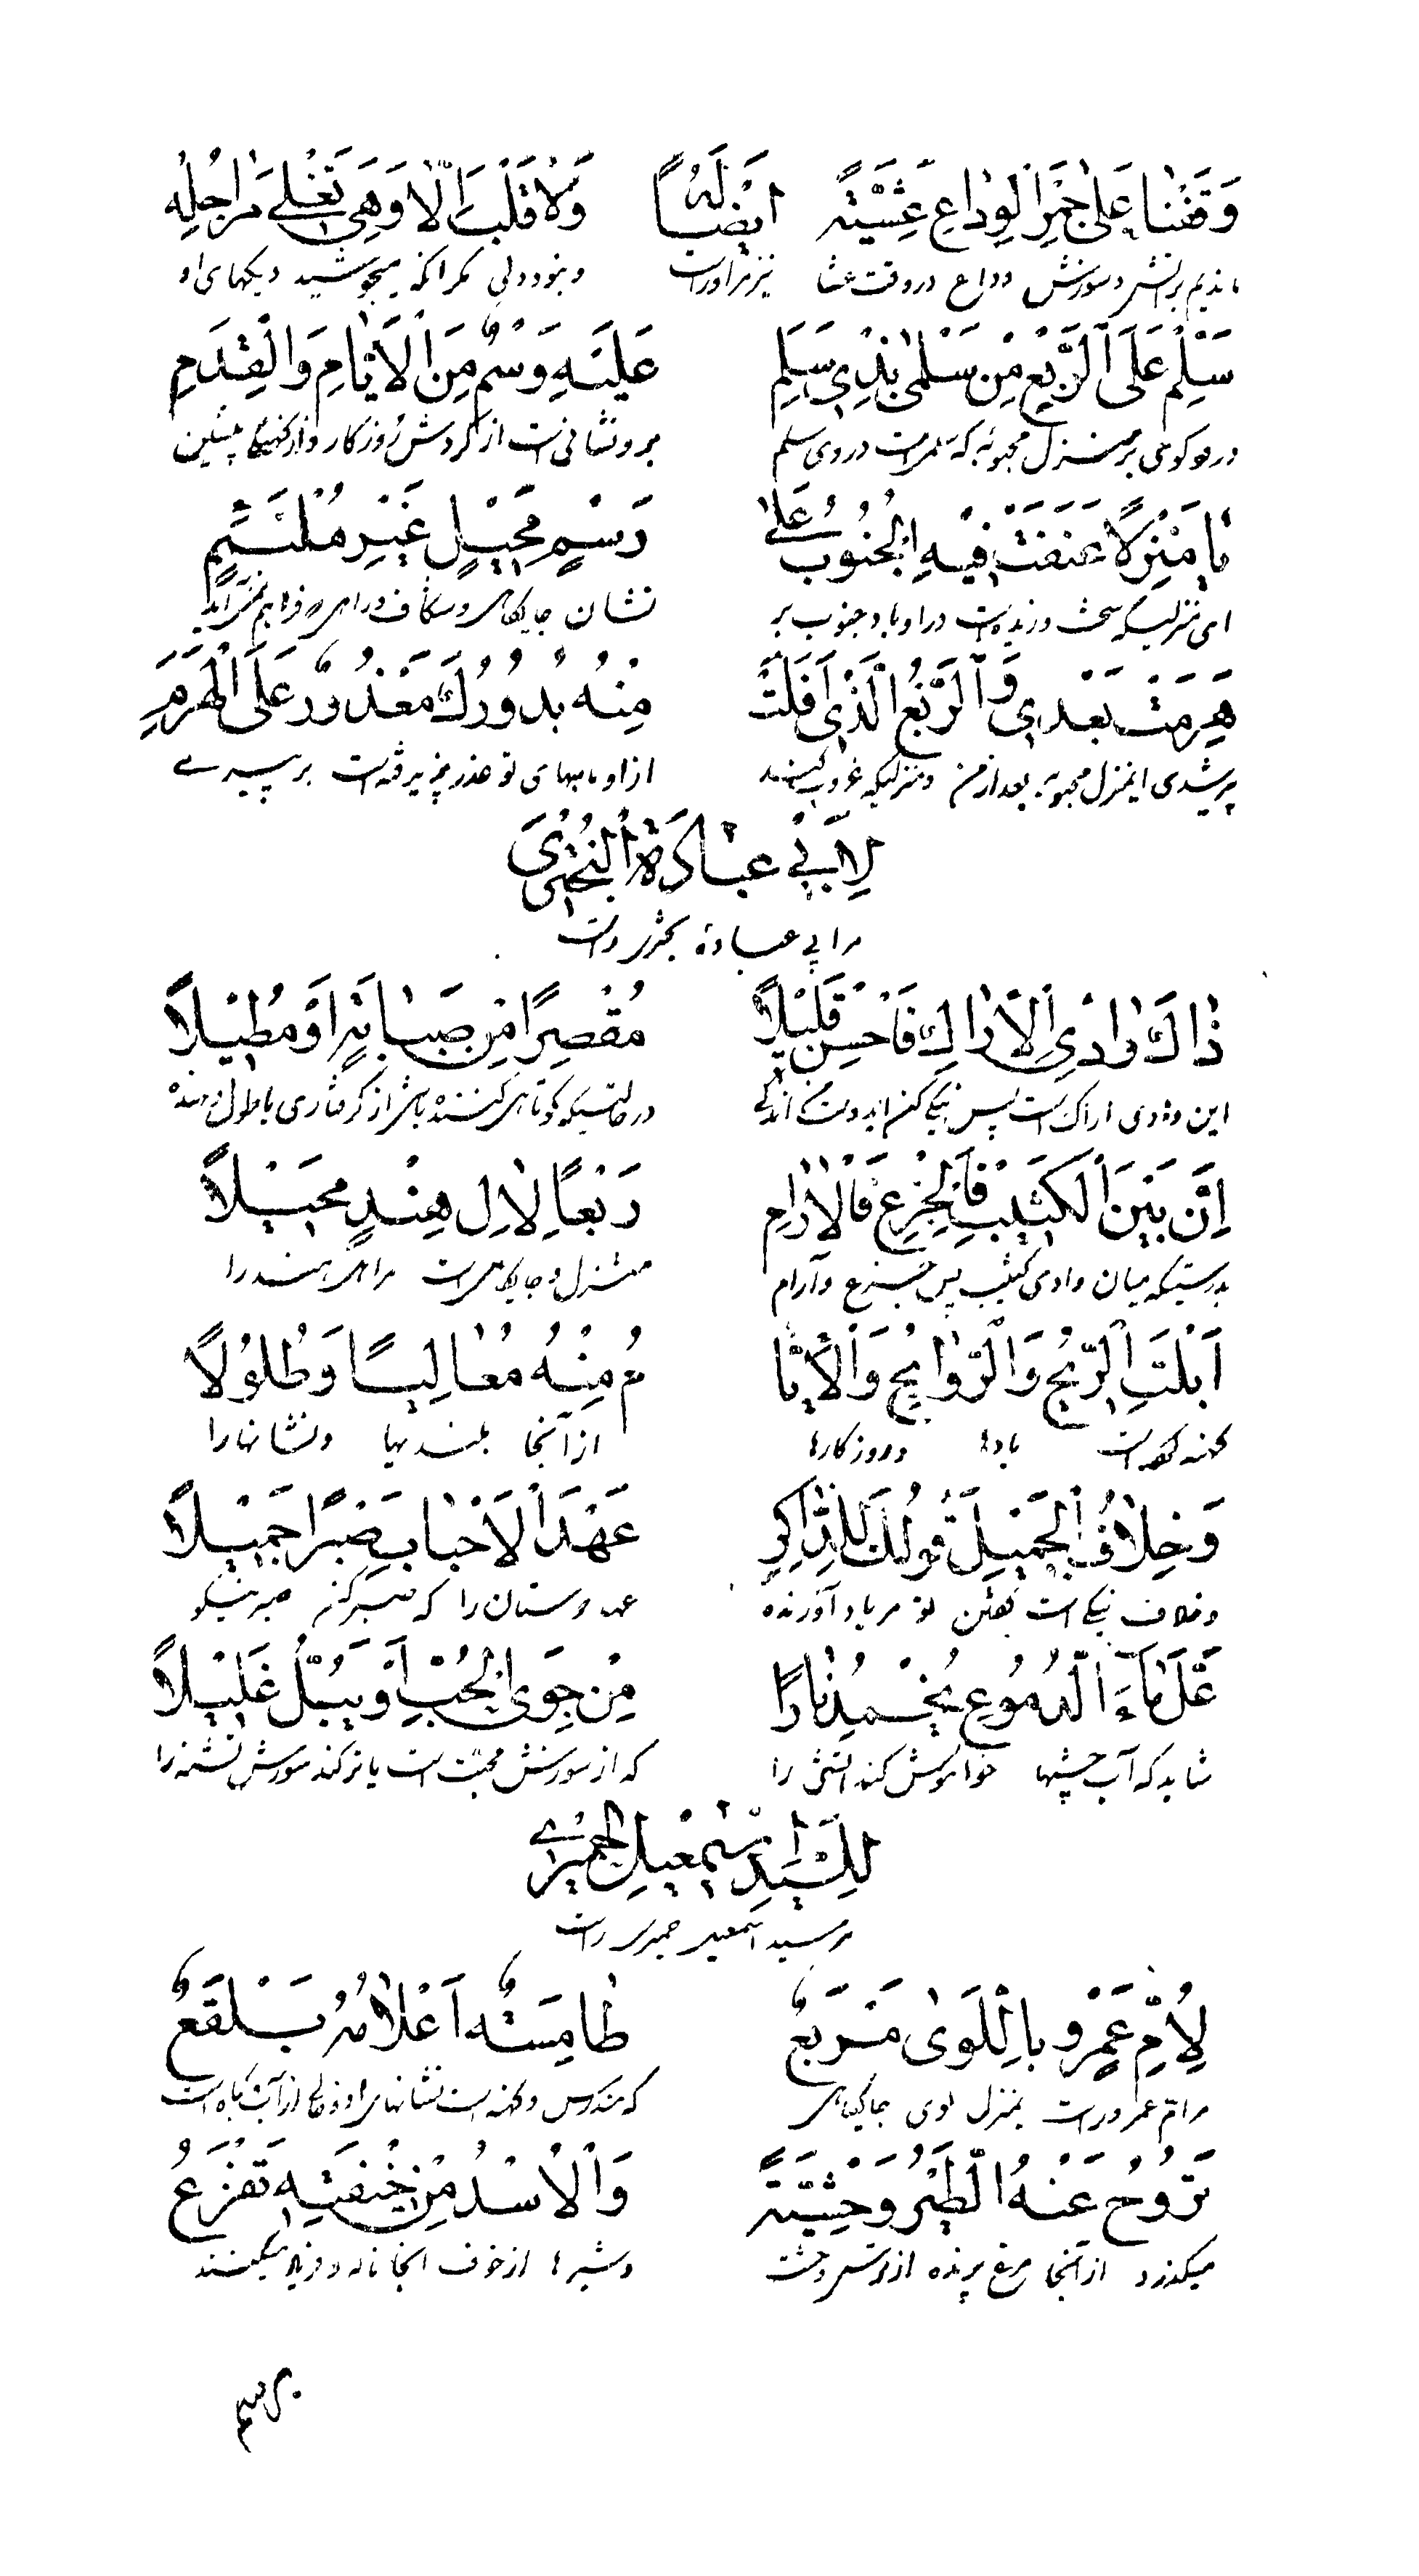 وَقَفْنَا عَلىٰ جَمْرِ الْوِدَاعِ عَشِيَّةً اَيْضاً لَهُ وَلاٰ قَلْبَ اِلّاٰ وَهِيَ تَغْلِي مَرَاجِلُه
ماندیم بر آتش و سوزش وداع در وقت عشا نیز مراوراست و نبود دلی مگر آنکه میجوشید دیکهای او
سَلِّمْ عَلَى الرَّبْعِ مِنْ سَلْمىٰ بِذِي سَلَمِ عَلَيْهِ وَسْمٌ مِنَ الْاَيَّامِ وَالْقِدَمِ
بر منزل محبوبه که سلمی است در ذی سلم بر و نشانی است از گردش روزکار و از کهنکی پیشین
يٰا مَنْزِلاً عَنَفَتْ فِيْهِ الْجَنُوْبُ عَلىٰ رَسْمٍ مُحِيْلٍ غَيْرِ مُلْتَئِمِ
ای منزلیکه سخت وزیده است در او باد جنوب بر نشان جایکاهی
هَرِمْتَ بَعْدِي وَالرَّبْعُ الَّذِي اَفَلَتْ مِنْهُ بُدُوْرُكَ مَعْذُوْرٌ عَلَى الْهَرَمِ
پیر شدی ایمنزل محبوبه بعد از من و منزلیکه غروب کنند از او ماههای تو عذر پذیرفته است بر پیری
لِاَبِي عُبَادَةَ الْبُحْتُرِيّ
مر ابی عبادة بحتری راست
ذٰاكَ وٰادِي الْاَرٰاكِ فَاحْبِسْ قَلِيْلاً مُقْصِرًا مِنْ صَبَابَةٍ اَوْ مُطِيْلاً
این وادی اراک است پس
اِنَّ بَيْنَ الْكَثِيْبِ فَالْجِزْعِ فَالْاٰرٰامِ رَبْعاً لِاٰلِ هِنْدٍ مُحِيْلاً
بدرستیکه میان وادی کثیب پس جزع و آرام منزل و جایکاهی است مر اهل هند را
اَبْلَتِ الرِّيْحُ وَالرَّوٰايِحُ وَالْاَيّٰا مُ مِنْهُ مَعٰالِيًا وَطُلُوْلاً
کهنه کرده است بادها و روزکارها از آنجا بلندیها و نشانها را
وَخِلاٰفُ الْجَمِيْلِ قَوْلُكَ لِلذّٰاكِرِ عَهْدَ الْاَحْبٰابِ صَبْرًا جَمِيْلاً
و خلاف نیکی است گفتن تو مر یاد آورنده عهد دوستان را که صبر کن صبر نیکو
عَلَّ مٰاءَ الدُّمُوْعِ يُخْمِدُ نٰارًا مِنْ جَوَى الْحُبِّ اَوْ يَبُلُّ غَلِيْلاً
شاید که آب چشمها خواموش کند آتش را که از سوزش محبت است یا تر کند سوزش تشنه را
لِلسَّيِّدِ اِسْمٰعِيْلَ الْحِمْيَرِي
مر سید اسمعیل حمیری راست
لِاُمِّ عَمْرٍو بِاللِّوىٰ مَرْبَعُ طٰامِسَةٌ اَعْلاٰمُهُ بَلْقَعُ
مر ام عمرو راست بمنزل لوی جایکاهی که مندرس و کهنه است نشانهای او و خالی از آب و کیاه است
تَرُوْحُ عَنْهُ الطَّيْرُ وَحْشِيَّةً وَالْاُسْدُ مِنْ خِيْفَتِهِ تَفْزَعُ
میکذرد از آنجا مرغ پرنده از ترس و وحشت و شیرها از خوف آنجا ناله و فزع میکنند
برسم